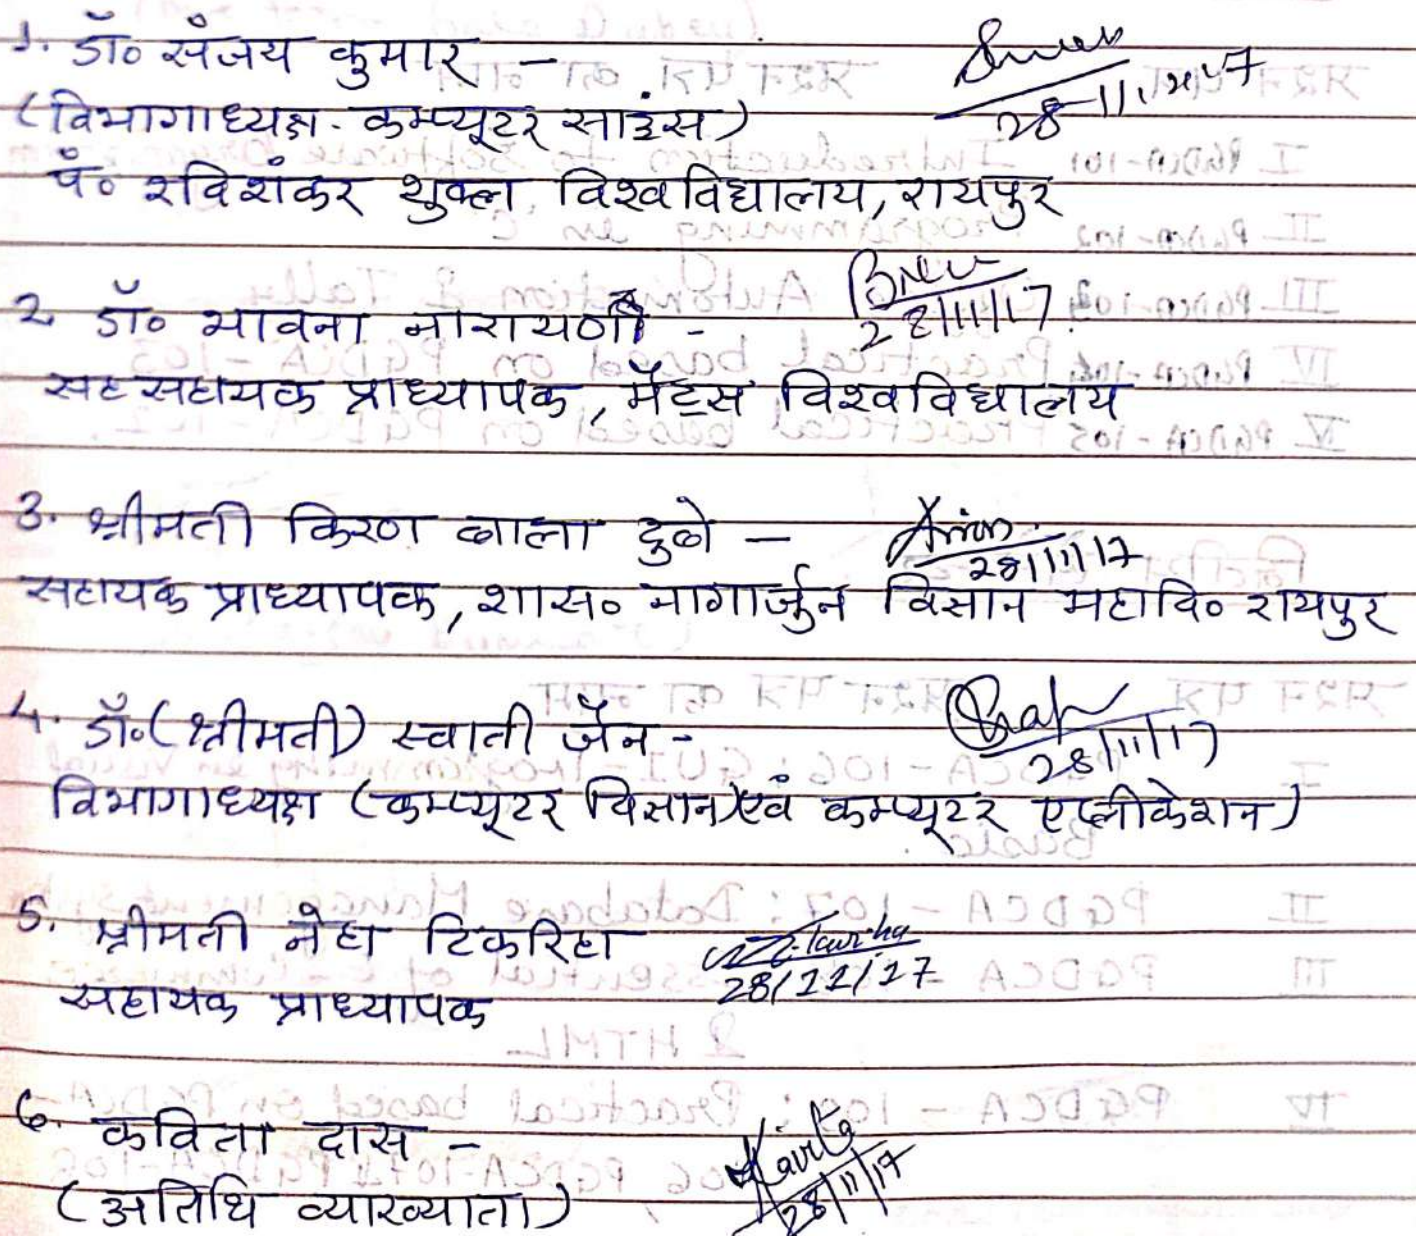 1. डॉ० संजय कुमार -
28-11-2017
(विभागाध्यक्ष - कम्प्यूटर साइंस)
पं० रविशंकर शुक्ल विश्वविद्यालय, रायपुर
2 डॉ० भावना नारायण -
28/11/17
सह सहायक प्राध्यापक, मैट्स विश्वविद्यालय
3. श्रीमती किरण बाला दुबे -
28/11/17
सहायक प्राध्यापक, शास० नागार्जुन विज्ञान महावि० रायपुर
4. डॉ. (श्रीमती) स्वाती जैन -
28/11/17
विभागाध्यक्ष (कम्प्यूटर विज्ञान) एवं कम्प्यूटर एप्लीकेशन)
5. श्रीमती नेहा टिकरिहा
28/11/17
सहायक प्राध्यापक
6. कविता दास - Kavita
28/11/17
(अतिथि व्याख्याता)